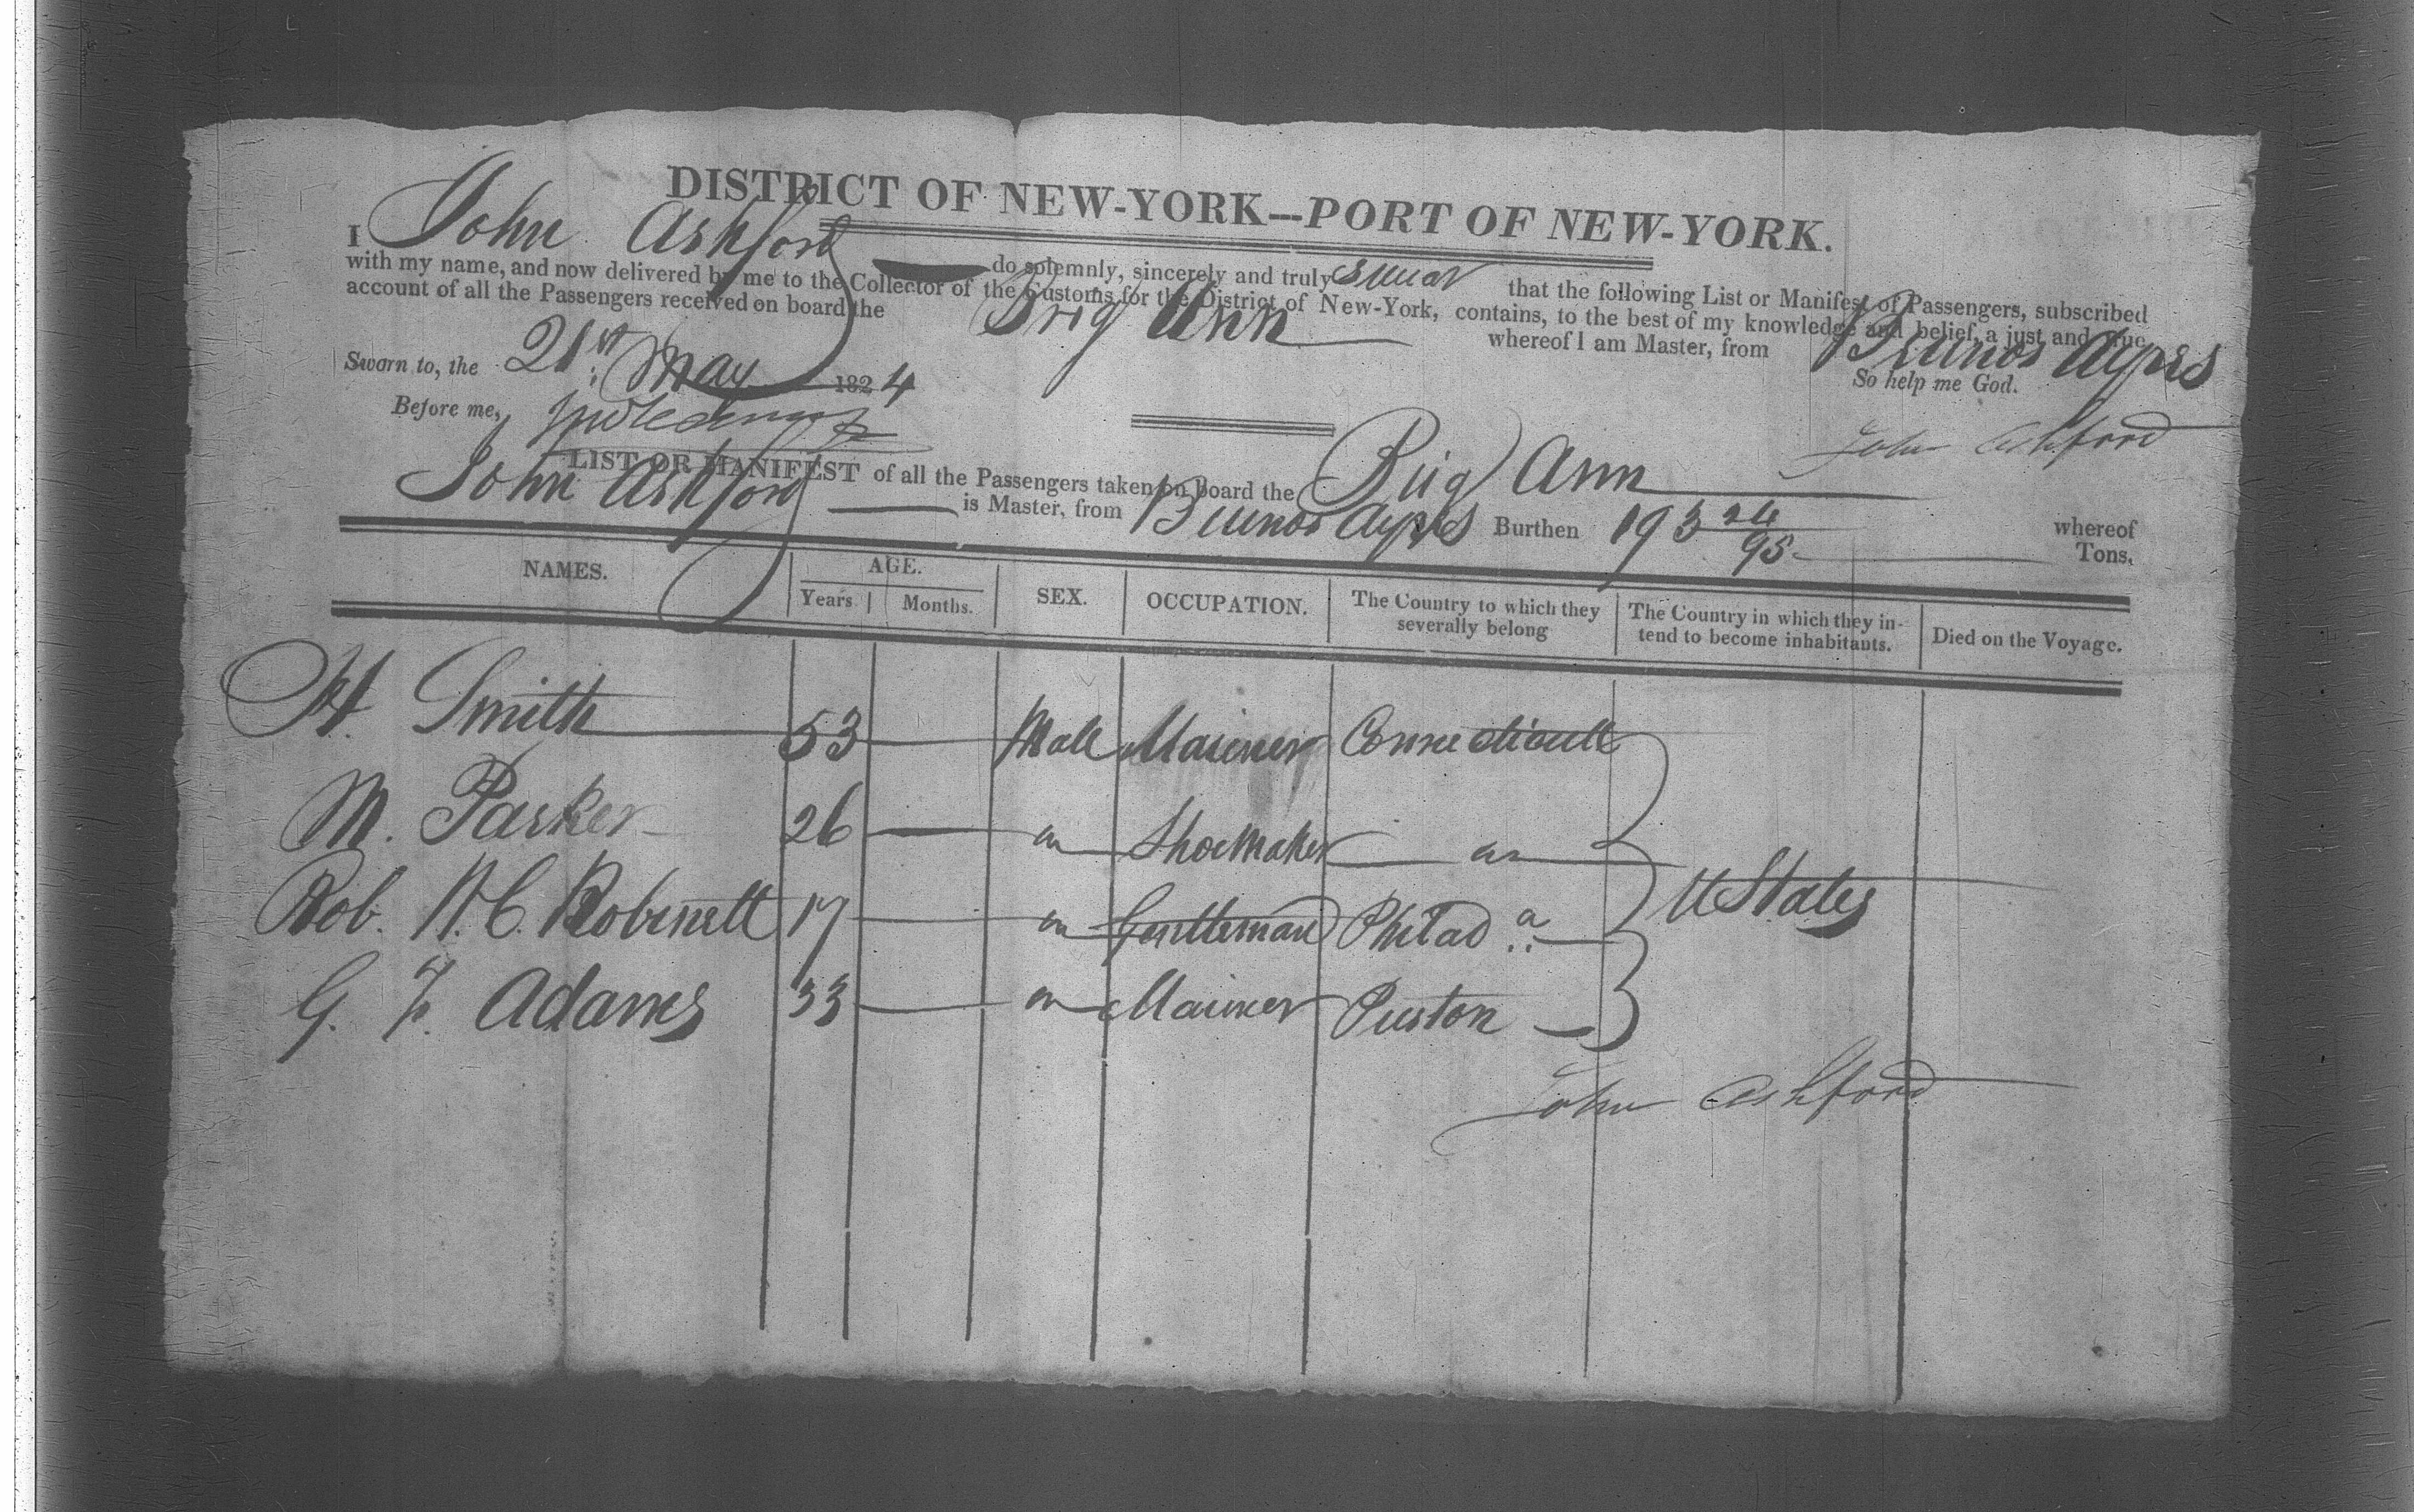 DISTRICT OF NEW-YORK--PORT OF NEW-YORK.
I John Ashford do solemnly, sincerely and truly swear that the following List or Manifest of Passengers, subscribed
with my name, and now delivered by me to the Collector of the Customs for the District of New-York, contains, to the best of my knowledge and belief, a just and true
account of all the Passengers received on board the Brig Ann whereof I am Master, from Buenos Ayres
Sworn to, the 21st May 1824 So help me God.
Before me, John Ashford
LIST OR MANIFEST of all the Passengers taken on board the Brig Ann whereof
John Ashford is Master, from Buenos Ayres Burthen 193 26/95 Tons.
NAMES. AGE. SEX. OCCUPATION. The Country to which they severally belong The Country in which they in-tend to become inhabitants. Died on the Voyage.
Years Months.
H. Smith 53 Male Mariner Connecticutt
M. Parker 26 Shoemaker
Rob. H. C. Robinett 17 Gentleman Philad a U States
G. F. Adams 33 Mariner
John Ashford